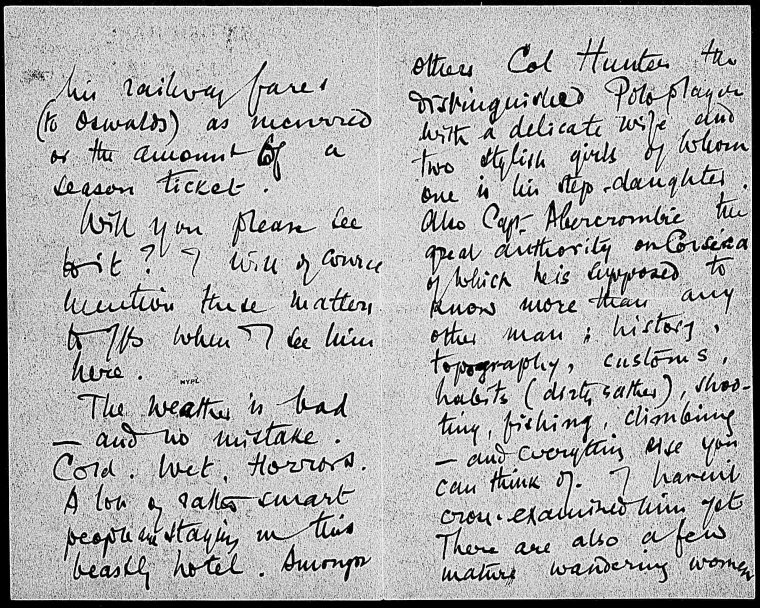 his railway fares
(to Oswalds) as incurred
or the amount of a
season ticket.
Will you please see
to it? I will of course
mention these matters
to when I see him
here.
NYPL
The weather is bad
— and no mistake.
Cold. Wet. Horrors.
A lot of rather smart
people staying in this
beastly hotel. Amongst
others Col Hunter the
distinguished Polo player
with a delicate wife and
two stylish girls of whom
one is his step-daughter.
Also Capt Abercrombie the
great authority on Corsica
of which he is supposed to
know more than any
other man; history,
topography, customs,
habits (dirty rather), shoo-
ting, fishing, climbing
— and everything else you
can think of. I haven't
cross-examined him yet
There are also a few
mature wandering women